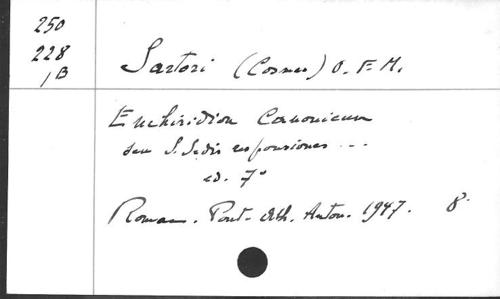 250
228
1B
Sartori (Cosmas) O.F.M.
Enchiridion Canonicum
seu S. Sedis responsiones ...
ed. 7ª
Romae. Pont. Ath. Anton. 1947. 8.